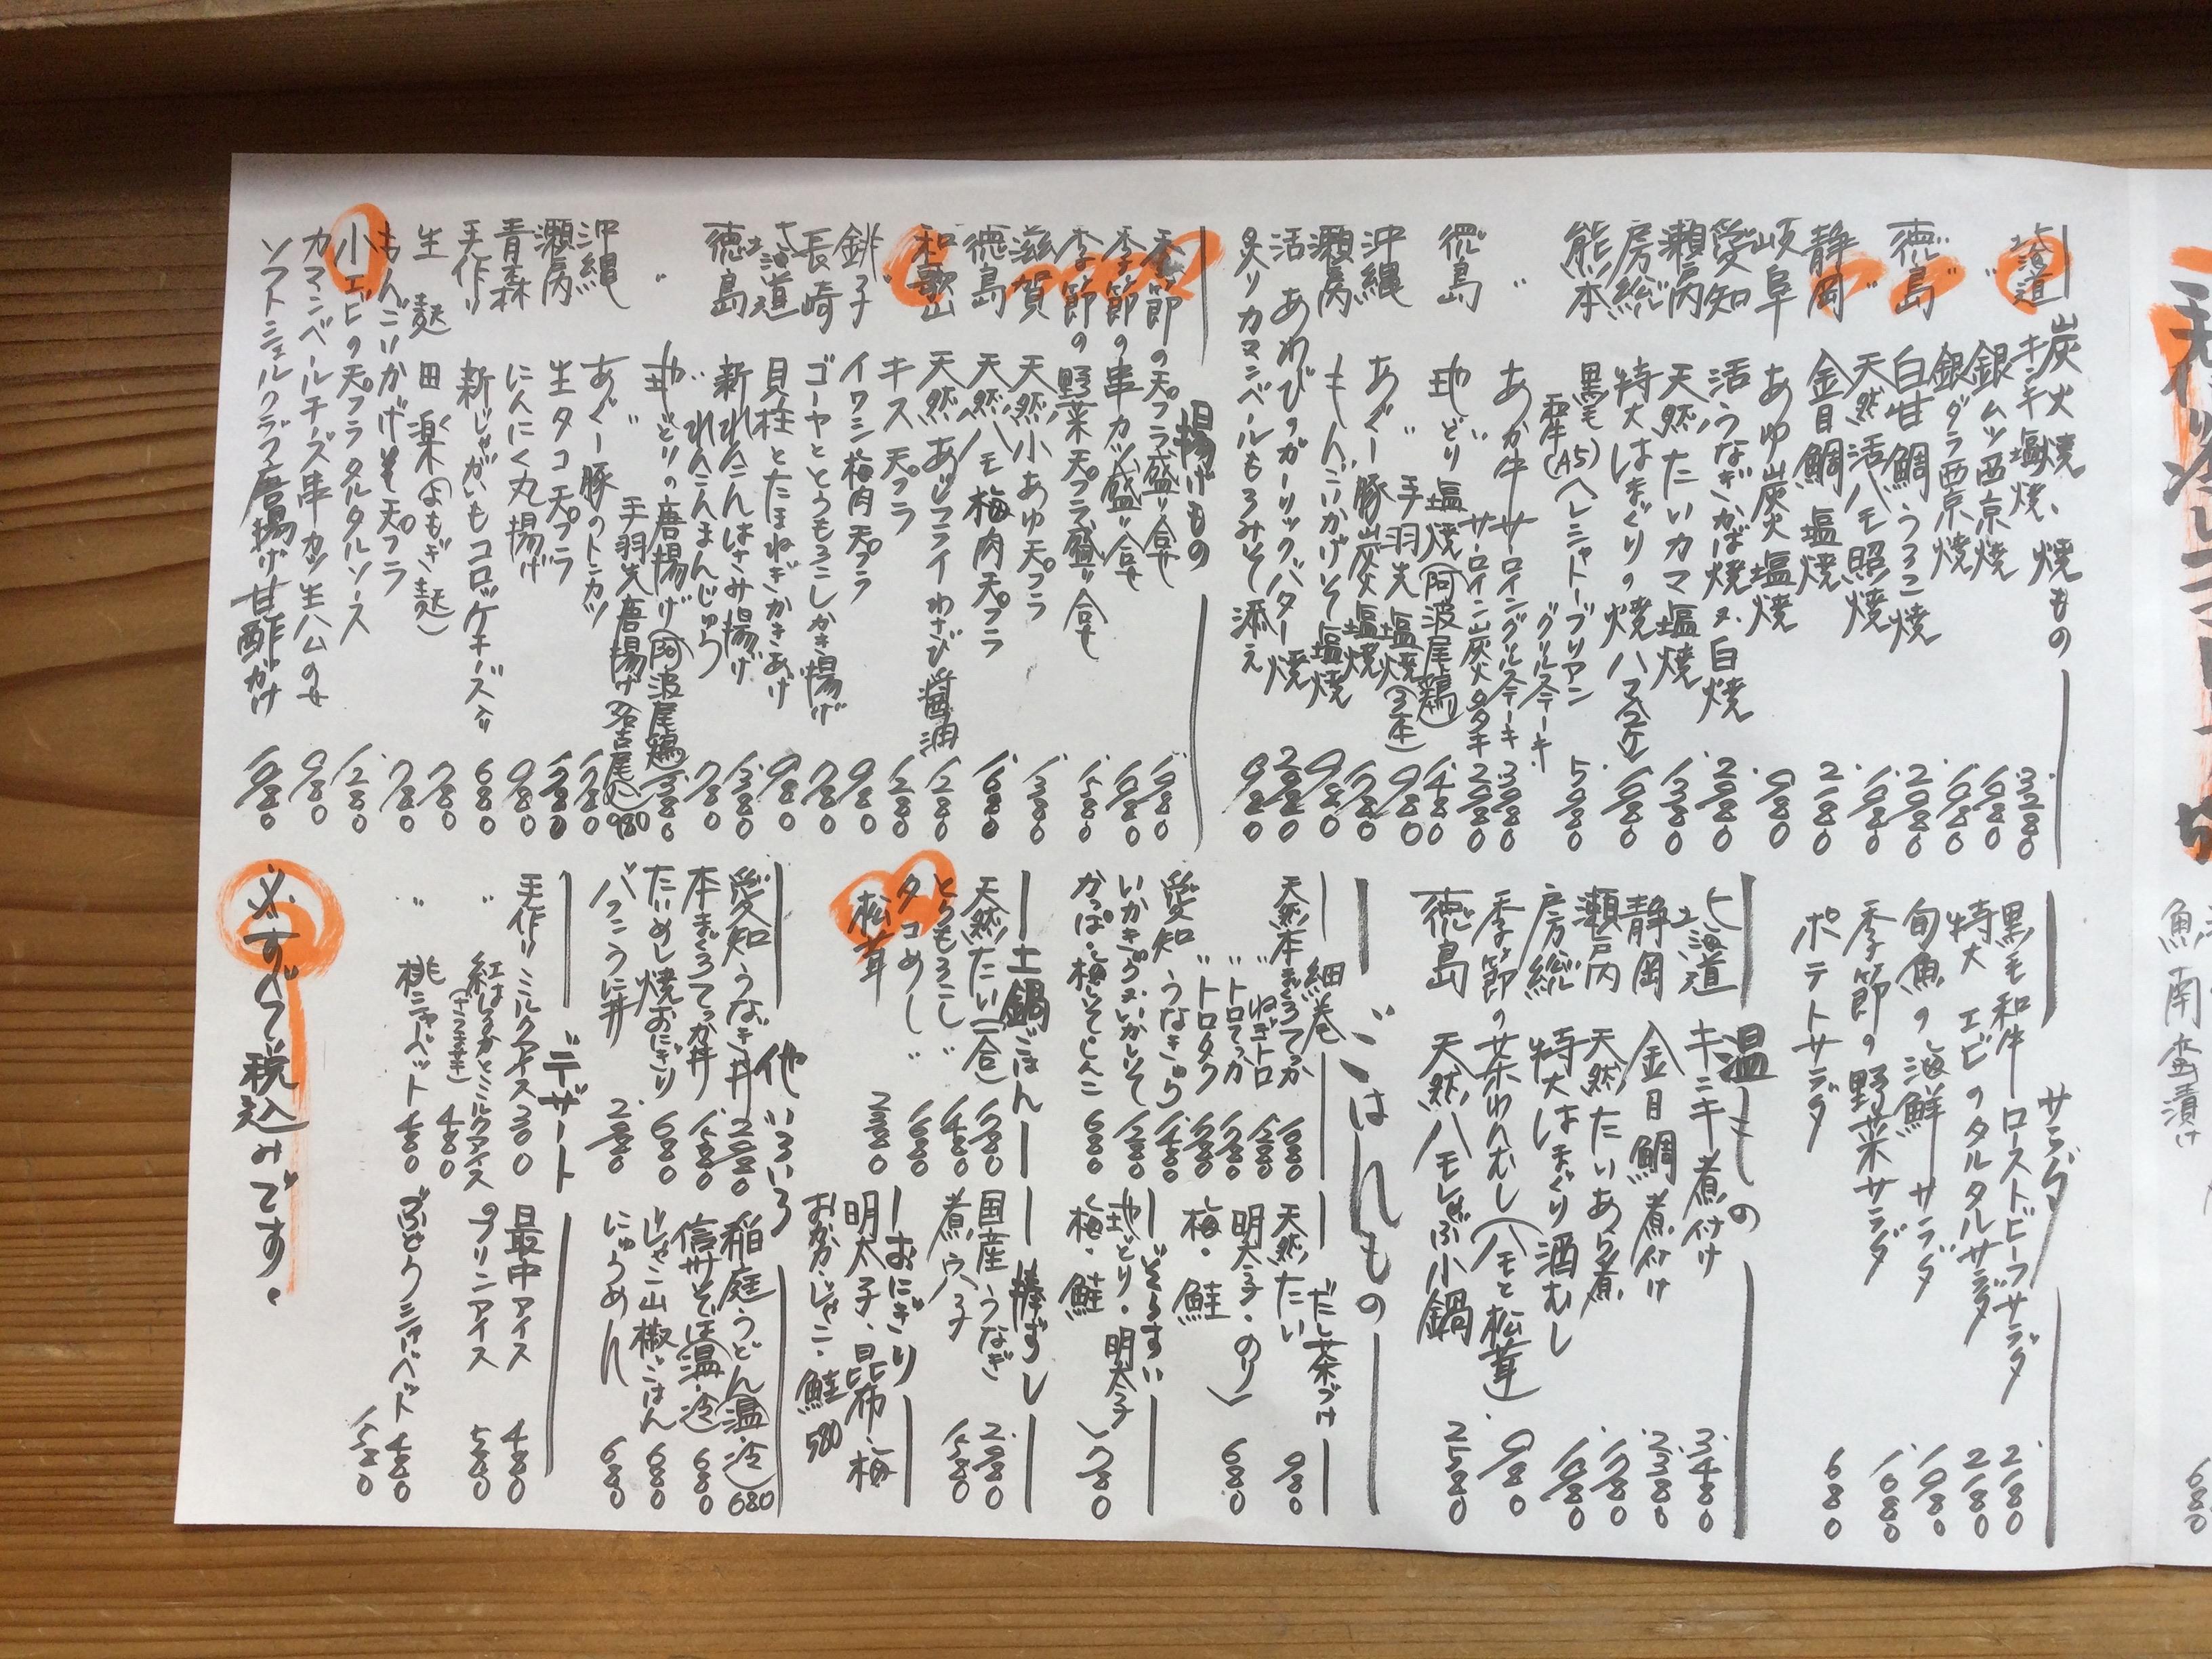 炭火焼、焼もの
北海道 キンキ塩焼 3280
〃 銀ムツ西京焼 1680
銀ダラ西京焼 1680
徳島 白甘鯛うろこ焼 2080
〃 天然活ハモ照焼 1980
静岡 金目鯛塩焼 2180
岐阜 あゆ炭火塩焼 980
愛知 活うなぎかば焼又白焼 2980
瀬戸内 天然たいカマ塩焼 1380
房総 特大はまぐりの焼ハマ 1080
熊本 黒毛和牛(A5)ヘレシャトーブリアン
グリルステーキ 5980
〃 あか牛サーロイングリルステーキ 3980
〃 サーロイン炭火タタキ 2980
徳島 地どり塩焼(阿波尾鶏) 1480
〃 手羽先塩焼(3本) 980
沖縄 あぐー豚炭火塩焼 1780
瀬戸内 もんごいかげそ塩焼 980
活あわびのガーリックバター焼 2980
炙りカマンベールもろみそ添え 980
揚げもの
季節の天プラ盛り合せ 1980
季節の串カツ盛り合せ 1680
季節の野菜天プラ盛り合せ 1580
滋賀 天然小あゆ天プラ 1380
徳島 天然ハモ梅肉天プラ 1680
和歌山 天然あじフライわさび醤油 1280
キス天プラ 1280
銚子 イワシ梅肉天プラ 980
長崎 ゴーヤととうもろこしかき揚げ 780
北海道 貝柱とたまねぎかきあげ 980
徳島 新れんこんはさみ揚げ 1380
〃 れんこんまんじゅう 780
〃 地どりの唐揚げ(阿波尾鶏) 1380
〃 手羽先唐揚げ 980
沖縄 あぐー豚のトンカツ 1780
瀬戸内 生タコ天プラ 1780
青森 にんにく丸揚げ 980
手作り 新じゃがいもコロッケチーズ入り 680
生麩田楽(よもぎ麩) 780
もんごいかげそ天プラ 780
小エビの天プラタルタルソース 1280
カマンベールチーズ串カツ生ハムのせ 980
ソフトシェルクラブ唐揚げ甘酢がけ 1080
サラダ
黒毛和牛ローストビーフサラダ 2180
特大エビのタルタルサラダ 2180
旬魚の海鮮サラダ 1980
季節の野菜サラダ 1080
ポテトサラダ 680
温もの
北海道 キンキ煮付け 3480
静岡 金目鯛煮付け 2380
瀬戸内 天然たいあら煮 1780
房総 特大はまぐり酒むし 1080
季節の茶わんむし(ハモと松茸) 980
徳島 天然ハモしゃぶ小鍋 2580
ごはんもの
細巻
天然本まぐろてっか 1680
〃 ねぎトロ 1280
〃 トロてっか 1780
〃 トロタク 1580
愛知 うなきゅう 1480
いかきゅう又いかしそ 1280
かっぱ・梅しそ・しんこ 680
だし茶づけ
天然たい 980
明太子・のり
梅・鮭 680
ぞうすい
地どり・明太子
梅・鮭 780
土鍋ごはん
天然たい(一合) 1780
とうもろこし〃 1480
タコめし〃 1680
松茸 2380
棒ずし
国産うなぎ 2980
煮穴子 1580
おにぎり
明太子・昆布・梅
おかか・じゃこ・鮭 580
他いろいろ
愛知 うなぎ丼 2980
本まぐろてっか丼 1580
たいめし焼おにぎり 680
バフンうに丼 2980
稲庭うどん(温・冷) 680
信州そば(温・冷) 680
じゃこ山椒ごはん 680
にゅうめん 680
デザート
手作り ミルクアイス 300
〃 紅はるかとミルクアイス 480
(さつま芋)
〃 桃シャーベット 480
最中アイス 480
プリンアイス 580
ぶどうシャーベット 480
1580
※すべて税込みです。
魚南蛮漬け
680